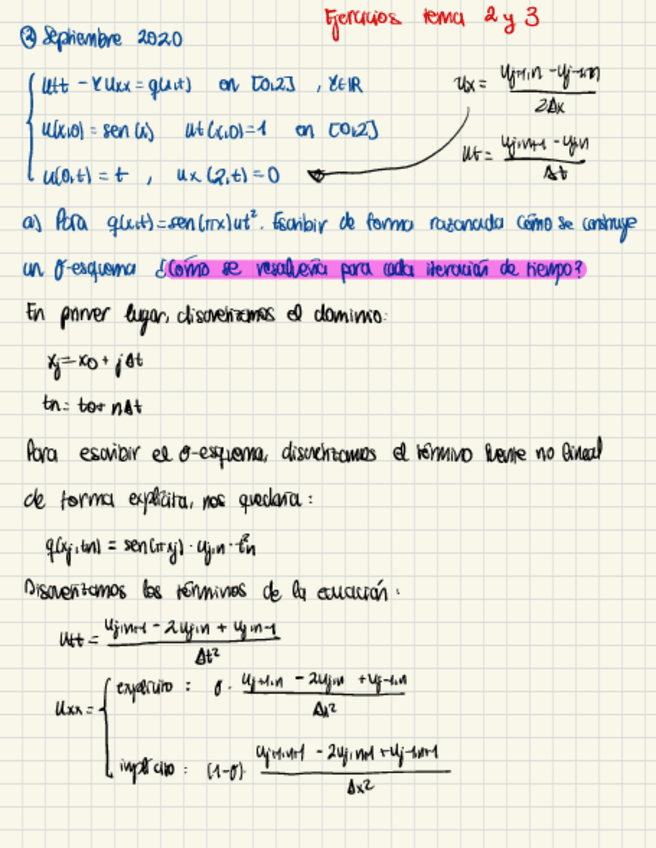 Ejercicios tema 2 y 3
② Septiembre 2020
utt - γuxx = q(x,t) en [0,2] , γ∈ℝ
u(x,0) = sen(x) ut(x,0)=1 en [0,2]
u(0,t) = t , ux(2,t)=0
ux = (uj+1,n - uj-1,n) / 2Δx
ut = (uj,n+1 - uj,n) / Δt
a) Para q(x,t)=sen(πx)ut². Escribir de forma razonada cómo se construye
un σ-esquema ¿Cómo se resolvería para cada iteración de tiempo?
En primer lugar, discretizamos el dominio:
xj = x0 + jΔt
tn = t0 + nΔt
Para escribir el σ-esquema, discretizamos el término fuente no lineal
de forma explícita, nos quedaría:
q(xj,tn) = sen(πxj) · uj,n · t²n
Discretizamos los términos de la ecuación:
utt = (uj,n+1 - 2uj,n + uj,n-1) / Δt²
uxx =
explícito : σ · (uj+1,n - 2uj,n + uj-1,n) / Δx²
implícito : (1-σ) · (uj+1,n+1 - 2uj,n+1 + uj-1,n+1) / Δx²